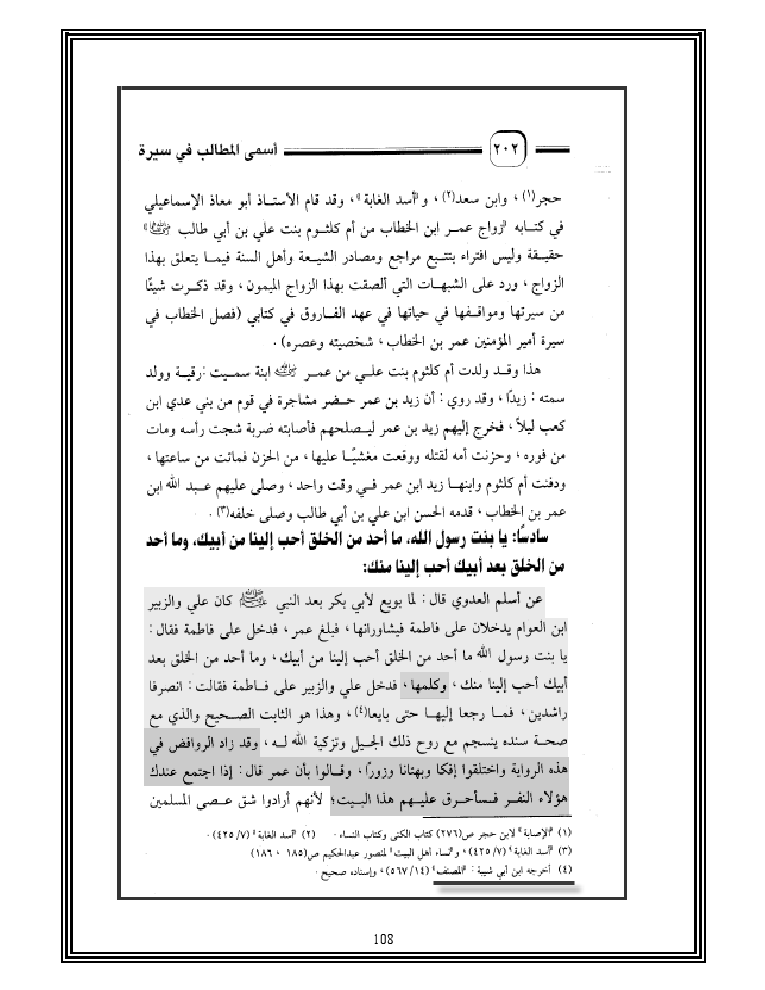 ٢٠٢ أسمى المطالب في سيرة
حجر(١) ، وابن سعد(٢) ، و«أسد الغابة» ، وقد قام الأستاذ أبو معاذ الإسماعيلي
في كتابه «زواج عمر ابن الخطاب من أم كلثوم بنت علي بن أبي طالب ﷺ»
حقيقة وليس افتراء بتتبع مراجع ومصادر الشيعة وأهل السنة فيما يتعلق بهذا
الزواج ، ورد على الشبهات التي ألصقت بهذا الزواج الميمون ، وقد ذكرت شيئًا
من سيرتها ومواقفها في حياتها في عهد الفاروق في كتابي (فصل الخطاب في
سيرة أمير المؤمنين عمر بن الخطاب ، شخصيته وعصره) .
هذا وقد ولدت أم كلثوم بنت علي من عمر ابنة سميت : رقية وولد
سمته : زيدًا ، وقد روي : أن زيد بن عمر حضر مشاجرة في قوم من بني عدي ابن
كعب ليلاً ، فخرج إليهم زيد بن عمر ليصلحهم فأصابته ضربة شجت رأسه ومات
من فوره ، وحزنت أمه لقتله ووقعت مغشيًا عليها ، من الحزن فماتت من ساعتها ،
ودفنت أم كلثوم وابنها زيد ابن عمر في وقت واحد ، وصلى عليهم عبد الله ابن
عمر بن الخطاب ، قدمه الحسن ابن علي بن أبي طالب وصلى خلفه(٣) .
سادسًا: يا بنت رسول الله، ما أحد من الخلق أحب إلينا من أبيك، وما أحد
من الخلق بعد أبيك أحب إلينا منك:
عن أسلم العدوي قال : لما بويع لأبي بكر بعد النبي ﷺ كان علي والزبير
ابن العوام يدخلان على فاطمة فيشاورانها ، فبلغ عمر ، فدخل على فاطمة فقال :
يا بنت رسول الله ما أحد من الخلق أحب إلينا من أبيك ، وما أحد من الخلق بعد
أبيك أحب إلينا منك ، وكلمها ، فدخل علي والزبير على فاطمة فقالت : انصرفا
راشدين ، فما رجعا إليها حتى بايعا(٤) ، وهذا هو الثابت الصحيح والذي مع
صحة سنده ينسجم مع روح ذلك الجيل وتزكية الله له ، وقد زاد الروافض في
هذه الرواية واختلقوا إفكا وبهتانا وزورًا ، وقالوا بأن عمر قال : إذا اجتمع عندك
هؤلاء النفر فسأحرق عليهم هذا البيت؛ لأنهم أرادوا شق عصى المسلمين
(١) «الإصابة» لابن حجر ص(٢٧٦) كتاب الكنى وكتاب النساء . (٢) «أسد الغابة» (٧/ ٤٢٥) .
(٣) «أسد الغابة» (٧/ ٤٢٥) ، و«نساء أهل البيت» لمنصور عبدالحكيم ص(١٨٥ ، ١٨٦)
(٤) أخرجه ابن أبي شيبة : «المصنف» (١٤/ ٥٦٧) ، وإسناده صحيح .
108